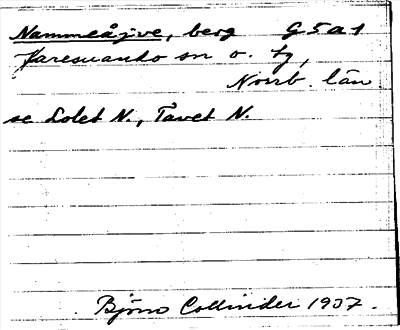 Nammeåjve, berg G5a1
Karesuando sn o. tg,
Norrb. län
se Lolet N., Tavet N.
Björn Collinder 1937.